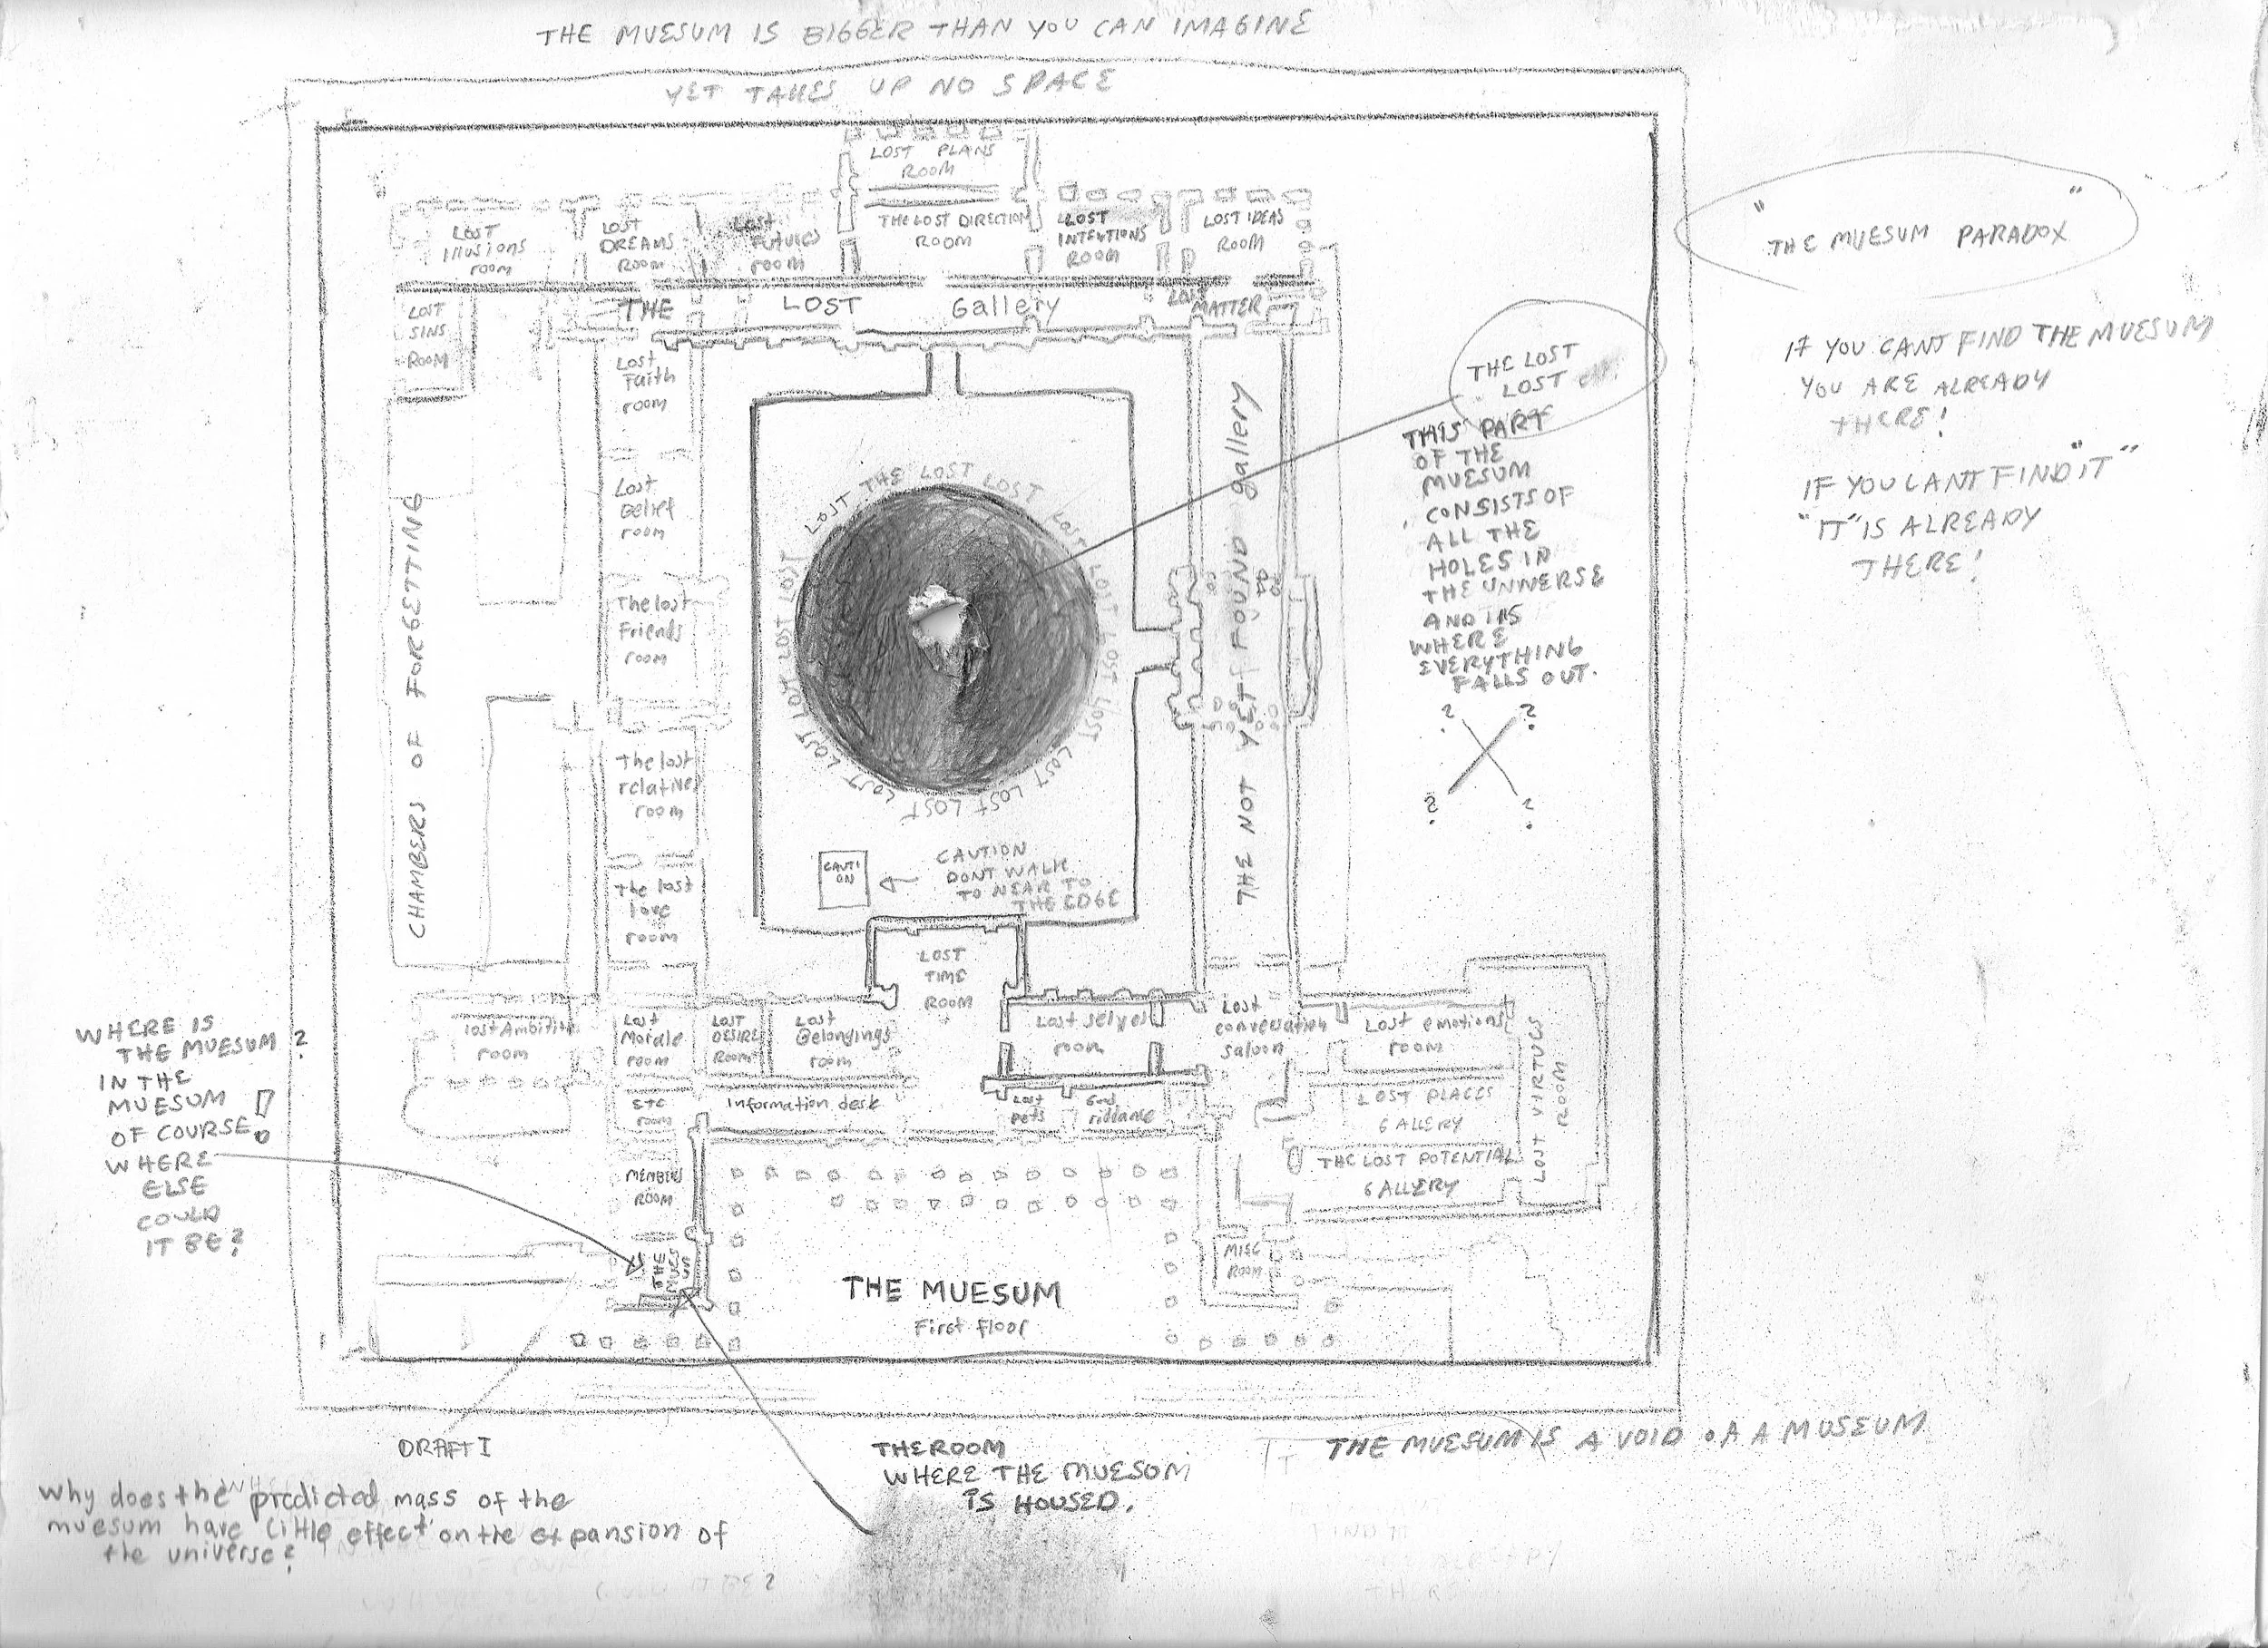 THE MUESUM IS BIGGER THAN YOU CAN IMAGINE
YET TAKES UP NO SPACE
LOST PLANS
ROOM
LOST
Illusions
room
LOST
DREAMS
ROOM
LOST
FUTURES
room
THE LOST DIRECTION
ROOM
LOST
INTENTIONS
ROOM
LOST IDEAS
ROOM
"THE MUESUM PARADOX"
IF YOU CANT FIND THE MUESUM
YOU ARE ALREADY
THERE!
IF YOU CANT FIND "IT"
"IT" IS ALREADY
THERE!
LOST
SINS
ROOM
THE LOST Gallery
LOST
MATTER
Lost
Faith
room
Lost
Belief
room
The lost
Friends
room
The lost
relative
room
The lost
love
room
CHAMBERS OF FORGETTING
LOST THE LOST LOST LOST LOST LOST LOST LOST LOST LOST LOST LOST LOST LOT LOST LOST
CAUTI
ON
CAUTION
DONT WALK
TO NEAR TO
THE EDGE
THE NOT YET FOUND gallery
THE LOST
LOST
THIS PART
OF THE
MUESUM
CONSISTS OF
ALL THE
HOLES IN
THE UNIVERSE
AND ITS
WHERE
EVERYTHING
FALLS OUT.
? ?
? ?
LOST
TIME
ROOM
lost Ambition
room
Lost
Morale
room
LOST
DESIRE
ROOM
Lost
Belongings
room
Lost selves
room
Lost
conversation
saloon
Lost emotions
room
LOST VIRTUES
ROOM
ETC
room
Information desk
Lost
pets
Good
riddance
LOST PLACES
GALLERY
THE LOST POTENTIAL
GALLERY
MEMBERS
ROOM
THE
MUESUM
MISC
ROOM
THE MUESUM
First floor
WHERE IS
THE MUESUM ?
IN THE
MUESUM
OF COURSE!
WHERE
ELSE
COULD
IT BE?
DRAFT I
THE ROOM
WHERE THE MUESUM
IS HOUSED.
THE MUESUM IS A VOID OF A MUSEUM
Why does the predicted mass of the
muesum have little effect on the expansion of
the universe?